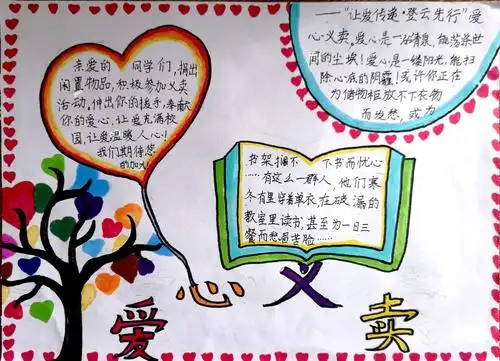 ——"让爱传递·登云先行"爱
心·义卖,爱心是一泓清泉,能荡涤世
间的尘埃!爱心是一缕阳光,能扫
除心底的阴霾!或许你正在
为储物柜放不下衣物
而发愁,或为
亲爱的 同学们,捐出
闲置物品,积极参加义卖
活动,伸出你的援手,奉献
你的爱心,让爱充满校
园,让爱温暖人心!
我们期待您
的加入
书架搁不下书而忧心
……有这么一群人,他们寒
冬有里穿着单衣,在破漏的
教室里读书,甚至为一日三
餐而愁眉苦脸……
爱心义卖